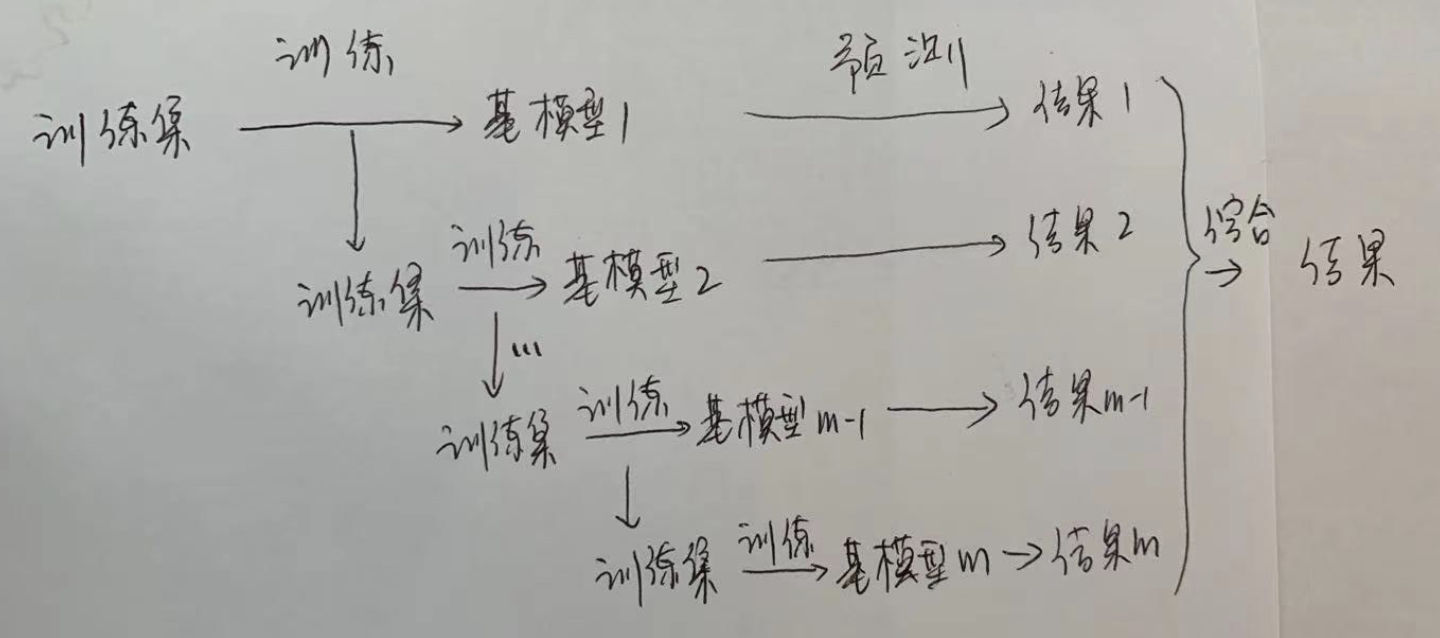 训练 预测
训练集 基模型1 结果1
训练 综合
训练集 基模型2 结果2 结果
...
训练
训练集 基模型m-1 结果m-1
训练
训练集 基模型m 结果m